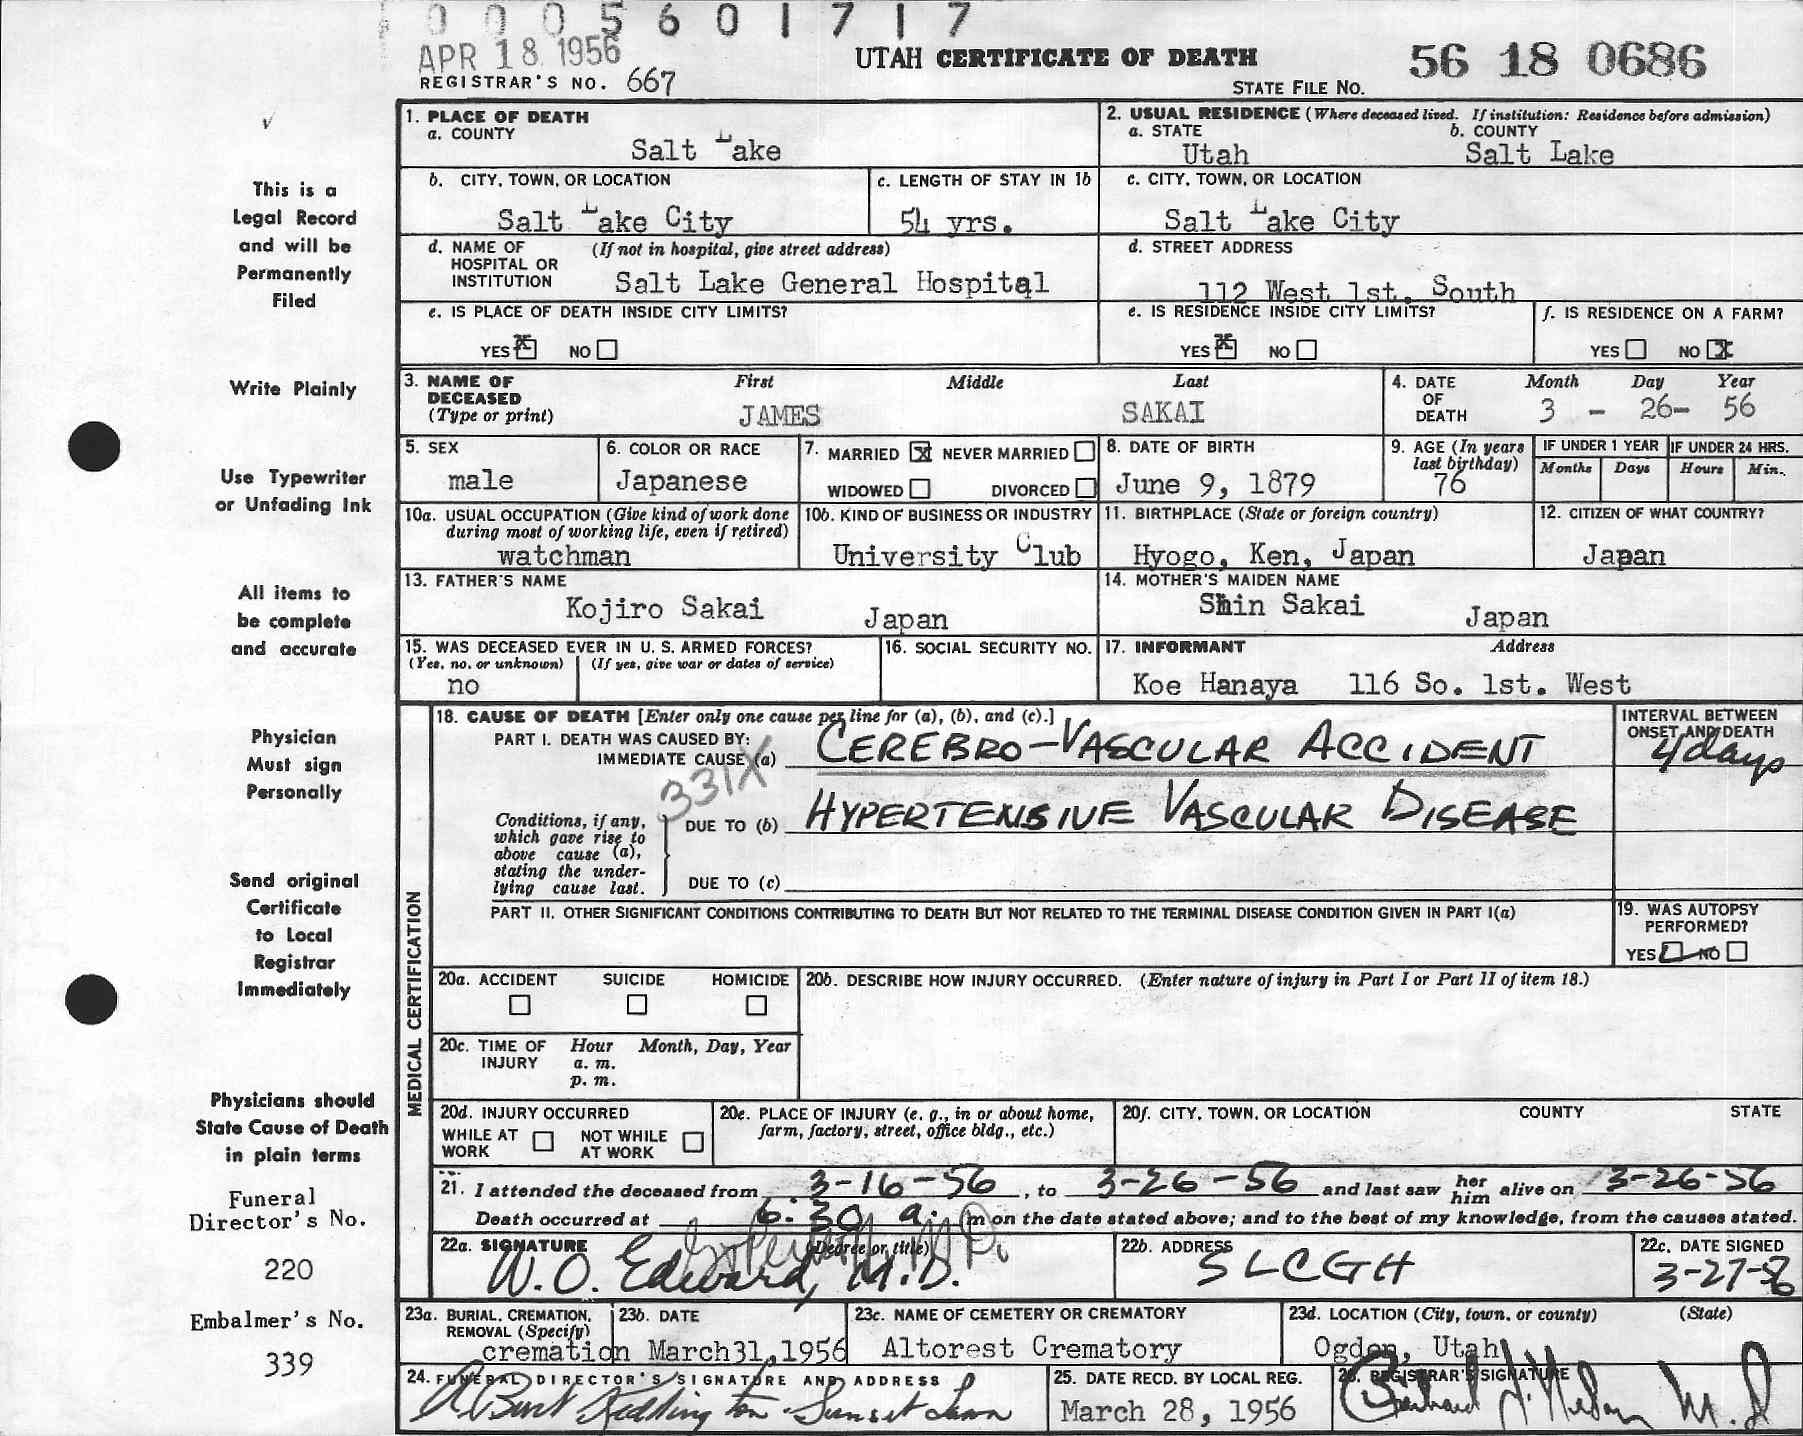 0005601717
APR 18 1956
UTAH CERTIFICATE OF DEATH
56 18 0686
REGISTRAR'S NO. 667
STATE FILE NO.
This is a
Legal Record
and will be
Permanently
Filed
Write Plainly
Use Typewriter
or Unfading Ink
All items to
be complete
and accurate
Physician
Must sign
Personally
Send original
Certificate
to Local
Registrar
Immediately
Physicians should
State Cause of Death
in plain terms
Funeral
Director's No.
220
Embalmer's No.
339
1. PLACE OF DEATH
a. COUNTY
Salt Lake
2. USUAL RESIDENCE (Where deceased lived. If institution: Residence before admission)
a. STATE b. COUNTY
Utah Salt Lake
b. CITY, TOWN, OR LOCATION
Salt Lake City
c. LENGTH OF STAY IN 1b
54 yrs.
c. CITY, TOWN, OR LOCATION
Salt Lake City
d. NAME OF (If not in hospital, give street address)
HOSPITAL OR
INSTITUTION
Salt Lake General Hospital
d. STREET ADDRESS
112 West 1st. South
e. IS PLACE OF DEATH INSIDE CITY LIMITS?
YES X NO
e. IS RESIDENCE INSIDE CITY LIMITS?
YES X NO
f. IS RESIDENCE ON A FARM?
YES NO X
3. NAME OF
DECEASED
(Type or print)
First Middle Last
JAMES SAKAI
4. DATE
OF
DEATH
Month Day Year
3 - 26- 56
5. SEX
male
6. COLOR OR RACE
Japanese
7. MARRIED X NEVER MARRIED
WIDOWED DIVORCED
8. DATE OF BIRTH
June 9, 1879
9. AGE (In years
last birthday)
76
IF UNDER 1 YEAR IF UNDER 24 HRS.
Months Days Hours Min.
10a. USUAL OCCUPATION (Give kind of work done
during most of working life, even if retired)
watchman
10b. KIND OF BUSINESS OR INDUSTRY
University Club
11. BIRTHPLACE (State or foreign country)
Hyogo, Ken, Japan
12. CITIZEN OF WHAT COUNTRY?
Japan
13. FATHER'S NAME
Kojiro Sakai Japan
14. MOTHER'S MAIDEN NAME
Shin Sakai Japan
15. WAS DECEASED EVER IN U. S. ARMED FORCES?
(Yes, no, or unknown) (If yes, give war or dates of service)
no
16. SOCIAL SECURITY NO.
17. INFORMANT Address
Koe Hanaya 116 So. 1st. West
MEDICAL CERTIFICATION
18. CAUSE OF DEATH [Enter only one cause per line for (a), (b), and (c).]
PART I. DEATH WAS CAUSED BY:
IMMEDIATE CAUSE (a) CEREBRO-VASCULAR ACCIDENT
331X
INTERVAL BETWEEN
ONSET AND DEATH
4 days
Conditions, if any,
which gave rise to
above cause (a),
stating the under-
lying cause last.
DUE TO (b) HYPERTENSIVE VASCULAR DISEASE
DUE TO (c)
PART II. OTHER SIGNIFICANT CONDITIONS CONTRIBUTING TO DEATH BUT NOT RELATED TO THE TERMINAL DISEASE CONDITION GIVEN IN PART I(a)
19. WAS AUTOPSY
PERFORMED?
YES NO
20a. ACCIDENT SUICIDE HOMICIDE
20b. DESCRIBE HOW INJURY OCCURRED. (Enter nature of injury in Part I or Part II of item 18.)
20c. TIME OF INJURY Hour Month, Day, Year
a. m.
p. m.
20d. INJURY OCCURRED
WHILE AT WORK NOT WHILE AT WORK
20e. PLACE OF INJURY (e. g., in or about home,
farm, factory, street, office bldg., etc.)
20f. CITY, TOWN, OR LOCATION COUNTY STATE
21. I attended the deceased from 3-16-56, to 3-26-56 and last saw her him alive on 3-26-56
Death occurred at 6:30 a. m on the date stated above; and to the best of my knowledge, from the causes stated.
22a. SIGNATURE (Degree or title)
W. O. Edward, M.D.
22b. ADDRESS
SLCGH
22c. DATE SIGNED
3-27-56
23a. BURIAL, CREMATION,
REMOVAL (Specify)
cremation
23b. DATE
March31,1956
23c. NAME OF CEMETERY OR CREMATORY
Altorest Crematory
23d. LOCATION (City, town, or county) (State)
Ogden, Utah
24. FUNERAL DIRECTOR'S SIGNATURE AND ADDRESS
Sunset Lawn
25. DATE RECD. BY LOCAL REG.
March 28, 1956
26. REGISTRAR'S SIGNATURE
M.D.